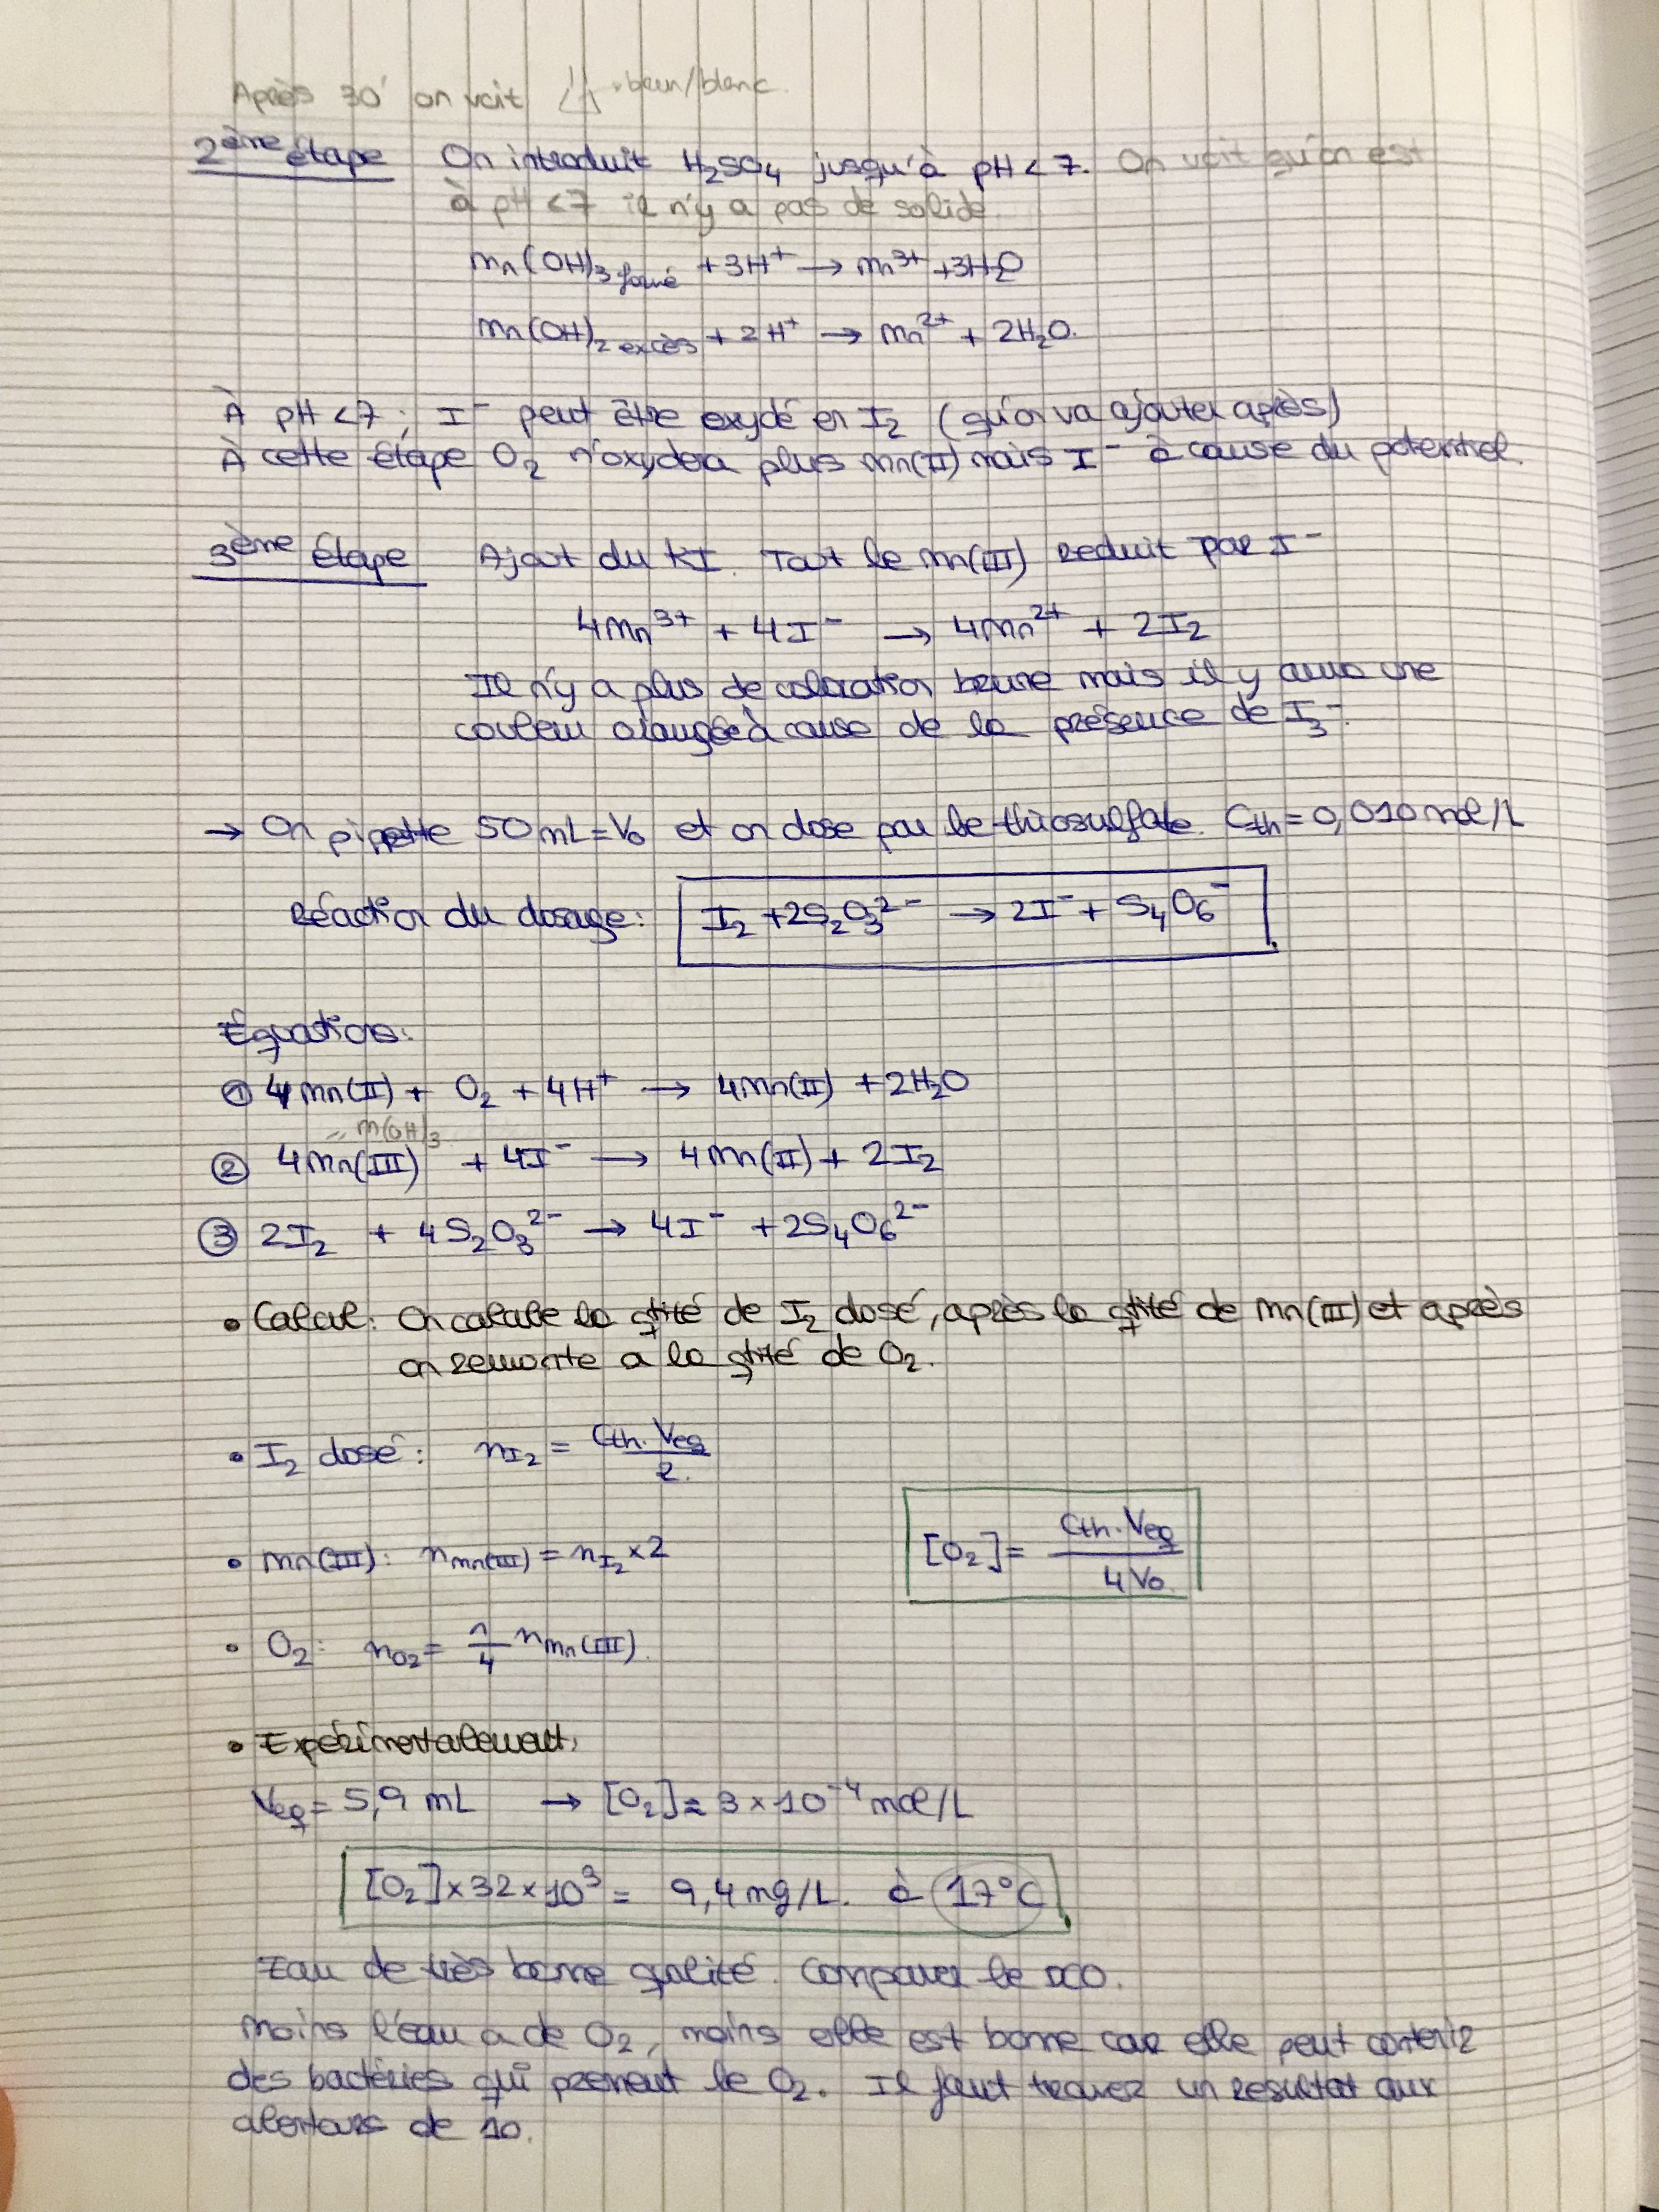 Après 30' on voit brun/blanc.
2ème étape On introduit H₂SO₄ jusqu'à pH < 7. On voit qu'on est
à pH < 7 il n'y a pas de solide.
Mn(OH)₃ formé + 3H⁺ → Mn³⁺ + 3H₂O
Mn(OH)₂ excès + 2H⁺ → Mn²⁺ + 2H₂O.
À pH < 7; I⁻ peut être oxydé en I₂ (qu'on va ajouter après)
À cette étape O₂ n'oxydera plus Mn(II) mais I⁻ à cause du potentiel.
3ème étape Ajout du KI. Tout le Mn(III) reduit par I⁻
4Mn³⁺ + 4I⁻ → 4Mn²⁺ + 2I₂
Il n'y a plus de coloration brune mais il y aura une
couleur orangée à cause de la présence de I₃⁻.
→ On pipette 50 mL = V₀ et on dose par le thiosulfate. Cth = 0,010 mol/L
Réaction du dosage: I₂ + 2S₂O₃²⁻ → 2I⁻ + S₄O₆⁻
Équations:
① 4Mn(II) + O₂ + 4H⁺ → 4Mn(II) + 2H₂O
= Mn(OH)₃
② 4Mn(III) + 4I⁻ → 4Mn(II) + 2I₂
③ 2I₂ + 4S₂O₃²⁻ → 4I⁻ + 2S₄O₆²⁻
• Calcul: On calcule la qtité de I₂ dosé, après la qtité de Mn(III) et après
on remonte a la qtité de O₂.
• I₂ dosé: nI₂ = Cth. Veq / 2.
• Mn(III): nMn(III) = nI₂ × 2
[O₂] = Cth. Veq / 4 V₀
• O₂: nO₂ = 1/4 nMn(III).
• Expérimentalement,
Veq = 5,9 mL → [O₂] ≈ 3 × 10⁻⁴ mol/L
[O₂] × 32 × 10³ = 9,4 mg/L. à 17°C
Eau de très bonne qualité. Comparer le DCO.
Moins l'eau a de O₂, moins elle est bonne car elle peut contenir
des bactéries qui prennent le O₂. Il faut trouver un resultat aux
alentours de 10.